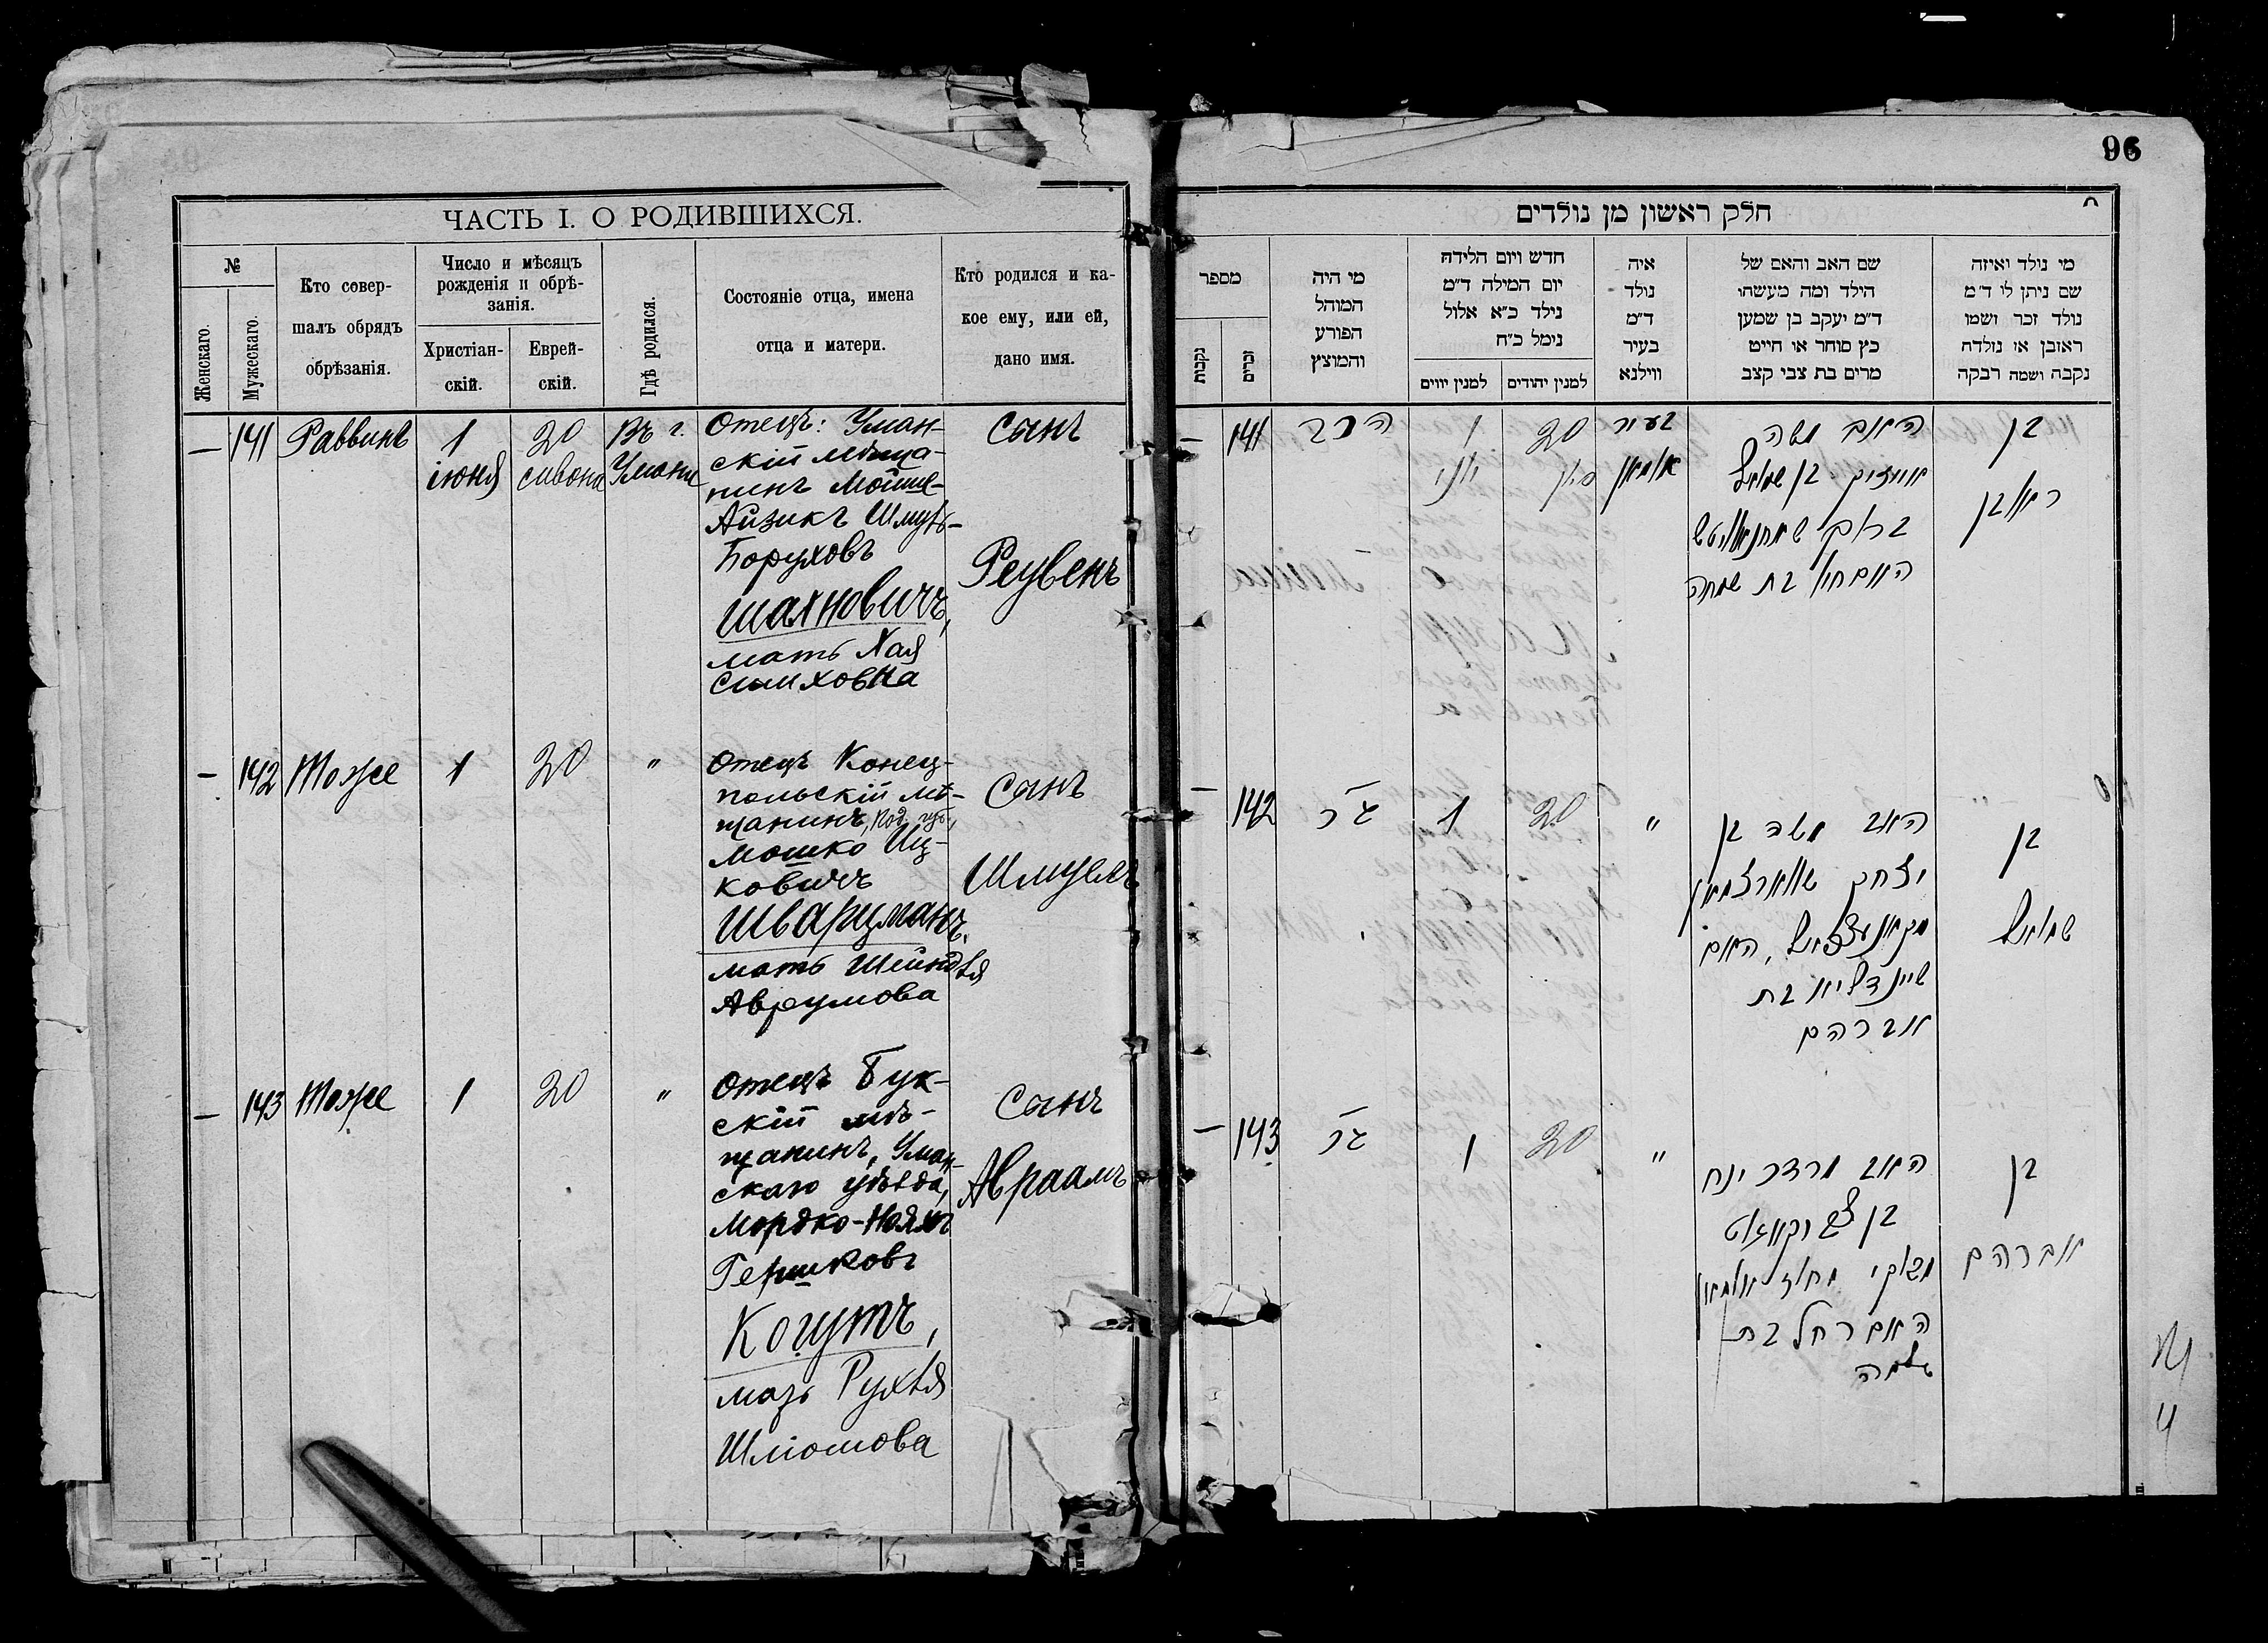 96
ЧАСТЬ I. О РОДИВШИХСЯ.
№
Женскаго.
Мужескаго.
Кто совер-
шалъ обрядъ
обрѣзанія.
Число и мѣсяцъ
рожденія и обрѣ-
занія.
Христіан-
скій.
Еврей-
скій.
Гдѣ родился.
Состояніе отца, имена
отца и матери.
Кто родился и ка-
кое ему, или ей,
дано имя.
— 141 Раввинъ
1
іюня
20
сивона
Въ г.
Умани
Отецъ: Уман-
скій мѣща-
нинъ Мойше-
Айзикъ Шмуль-
Боруховъ
Шахновичъ,
мать Хая
Симховна
Сынъ
Реувенъ
— 142 Тоже 1 20 "
Отецъ Конец-
польскій мѣ-
щанинъ, Под. губ.,
Мошко Иц-
ковичъ
Шварцманъ,
мать Шейндля
Аврумова
Сынъ
Шмуель
— 143 Тоже 1 20 "
Отецъ Бук-
скій мѣ-
щанинъ, Уман-
скаго уѣзда,
Мордко-Нояхъ
Гершковъ
Когутъ,
мать Рухля
Шліомова
Сынъ
Авраамъ
חלק ראשון מן נולדים
מספר
נקבות
זכרים
מי היה
המוהל
הפורע
והמוצץ
חדש ויום הלידה
יום המילה ד״מ
נילד כ״א אלול
נימל כ״ח
למנין יווים
למנין יהודים
איה
נולד
ד״מ
בעיר
ווילנא
שם האב והאם של
הילד ומה מעשהו
ד״מ יעקב בן שמען
כץ סוחר או חייט
מרים בת צבי קצב
מי נולד ואיזה
שם ניתן לו ד״מ
נולד זכר ושמו
ראובן או נולדה
נקבה ושמה רבקה
— 141
הרב
1
יוני
20
סיון
בעיר
אומאן
האב משה
אייזיק בן שמואל
ברוך שאחנאוויטש
האם חיה בת שמחה
בן
ראובן
— 142 1 20 "
האב משה בן
יצחק שווארצמאן
האם
שיינדליא בת
אברהם
בן
שמואל
— 143 1 20 "
האב מרדכי נח
בן
האם רחל בת
שלמה
בן
אברהם